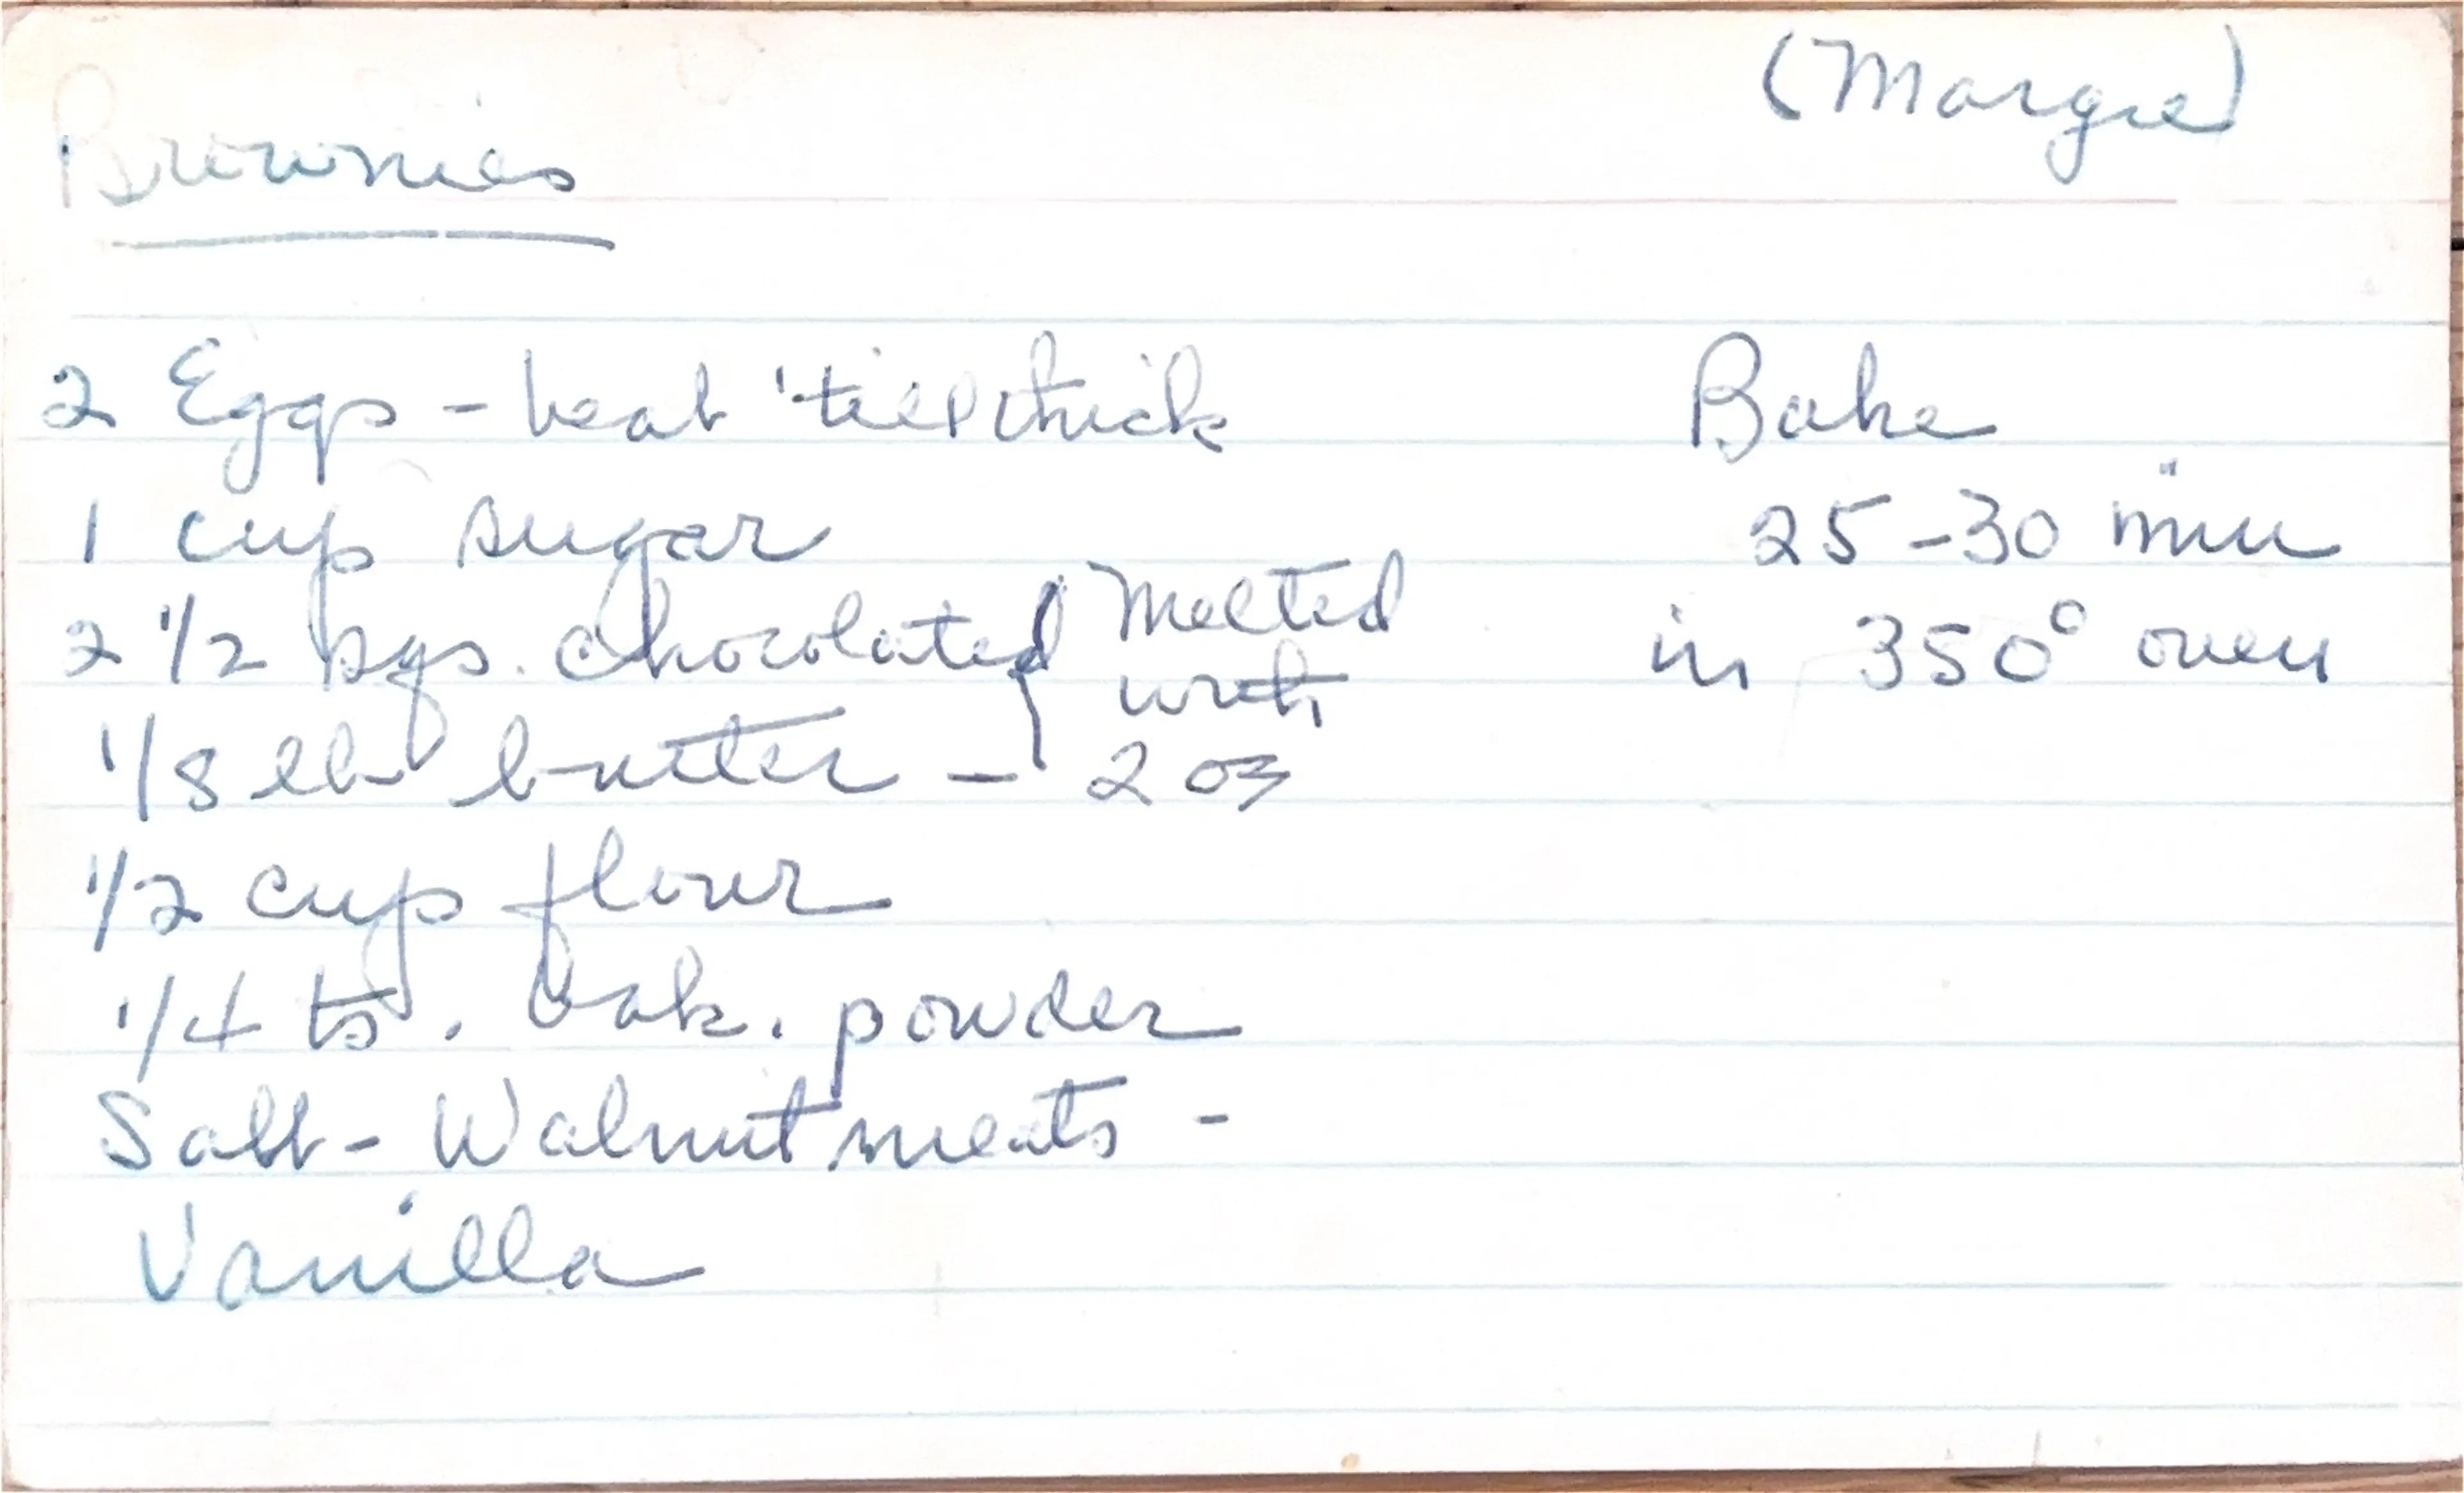 (Margie)
Brownies
2 Eggs - beat 'till thick
1 cup sugar
2 1/2 sqs. chocolated { Melted
with
1/8 lb butter - 2 oz
1/2 cup flour
1/4 ts. bak. powder
Salt - Walnut meats -
Vanilla
Bake
25-30 min
in 350° oven